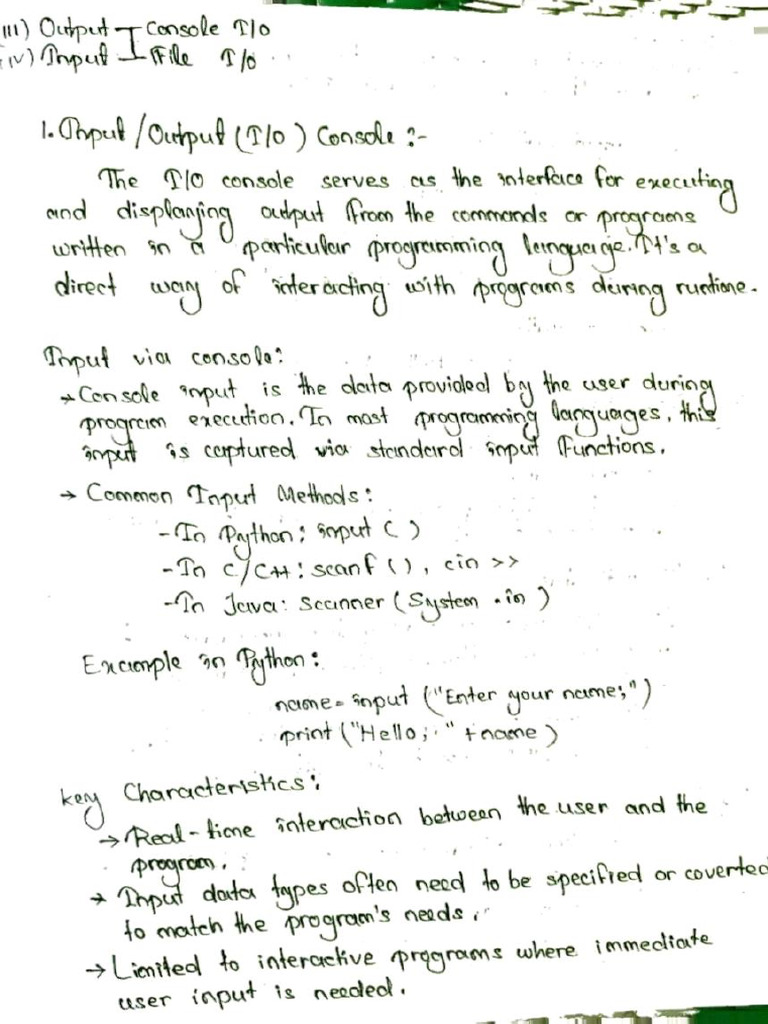 (iii) Output Console I/O
(iv) Input File I/o
1. Input/Output (I/O) Console :-
The I/O console serves as the interface for executing
and displaying output from the commands or programs
written in a particular programming language. It's a
direct way of interacting with programs during runtime.
Input via console:
→ Console input is the data provided by the user during
program execution. In most programming languages, this
input is captured via standard input functions.
→ Common Input Methods:
- In Python: input ( )
- In C/C++: scanf (), cin >>
- In Java: scanner (System .in )
Example in Python:
name= input ("Enter your name;")
print ("Hello; " + name )
key Characteristics:
→ Real-time interaction between the user and the
program.
→ Input data types often need to be specified or coverted
to match the program's needs.
→ Limited to interactive programs where immediate
user input is needed.